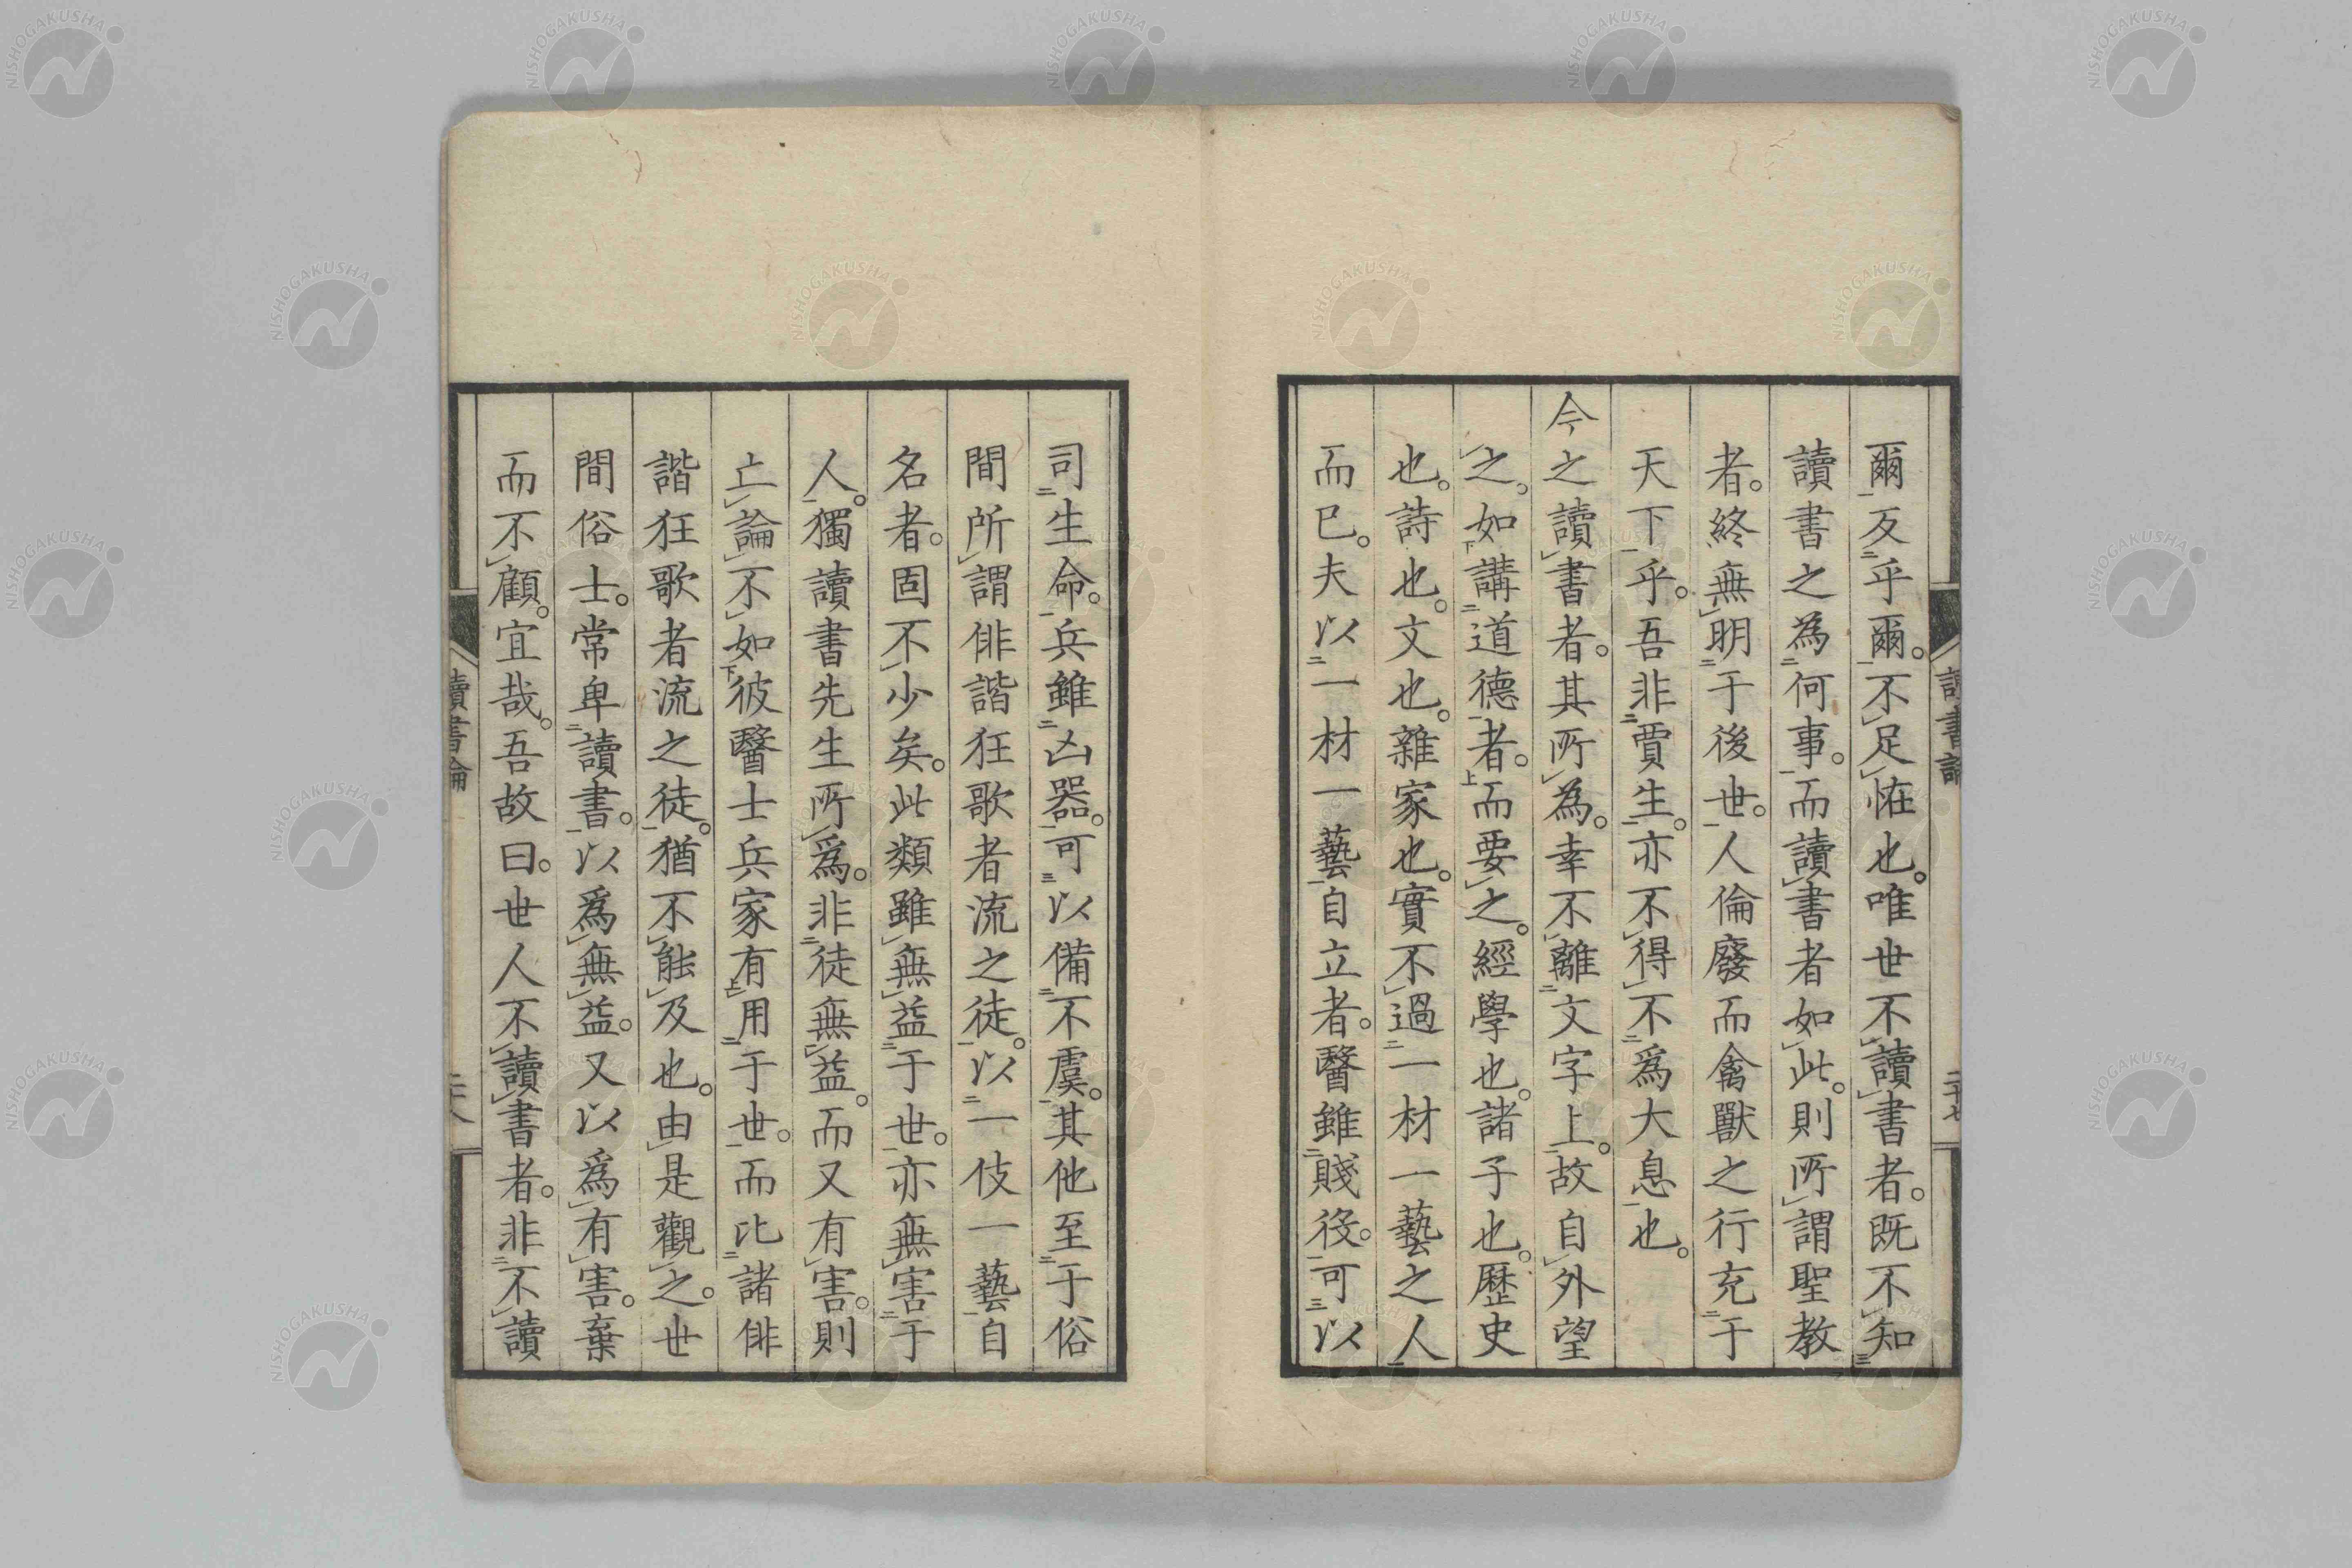 爾反乎爾。不足恠也。唯世不讀書者。既不知
讀書之為何事。而讀書者如此。則所謂聖教
者。終無明于後世。人倫廢而禽獸之行充于
天下乎。吾非賈生。亦不得不爲大息也。
今之讀書者。其所為。幸不離文字上。故自外望
之。如講道德者。而要之。經學也。諸子也。歷史
也。詩也。文也。雜家也。實不過一材一藝之人
而已。夫以一材一藝自立者。醫雖賤役。可以
司生命。兵雖凶器。可以備不虞。其他至于俗
間所謂俳諧狂歌者流之徒。以一伎一藝自
名者。固不少矣。此類雖無益于世。亦無害于
人。獨讀書先生所爲。非徒無益。而又有害。則
亡論不如彼醫士兵家有用于世。而比諸俳
諧狂歌者流之徒。猶不能及也。由是觀之。世
間俗士。常卑讀書。以爲無益。又以爲有害。棄
而不顧。宜哉。吾故曰。世人不讀書者。非不讀
讀書論
二十七
讀書論
二十八
NISHOGAKUSHA